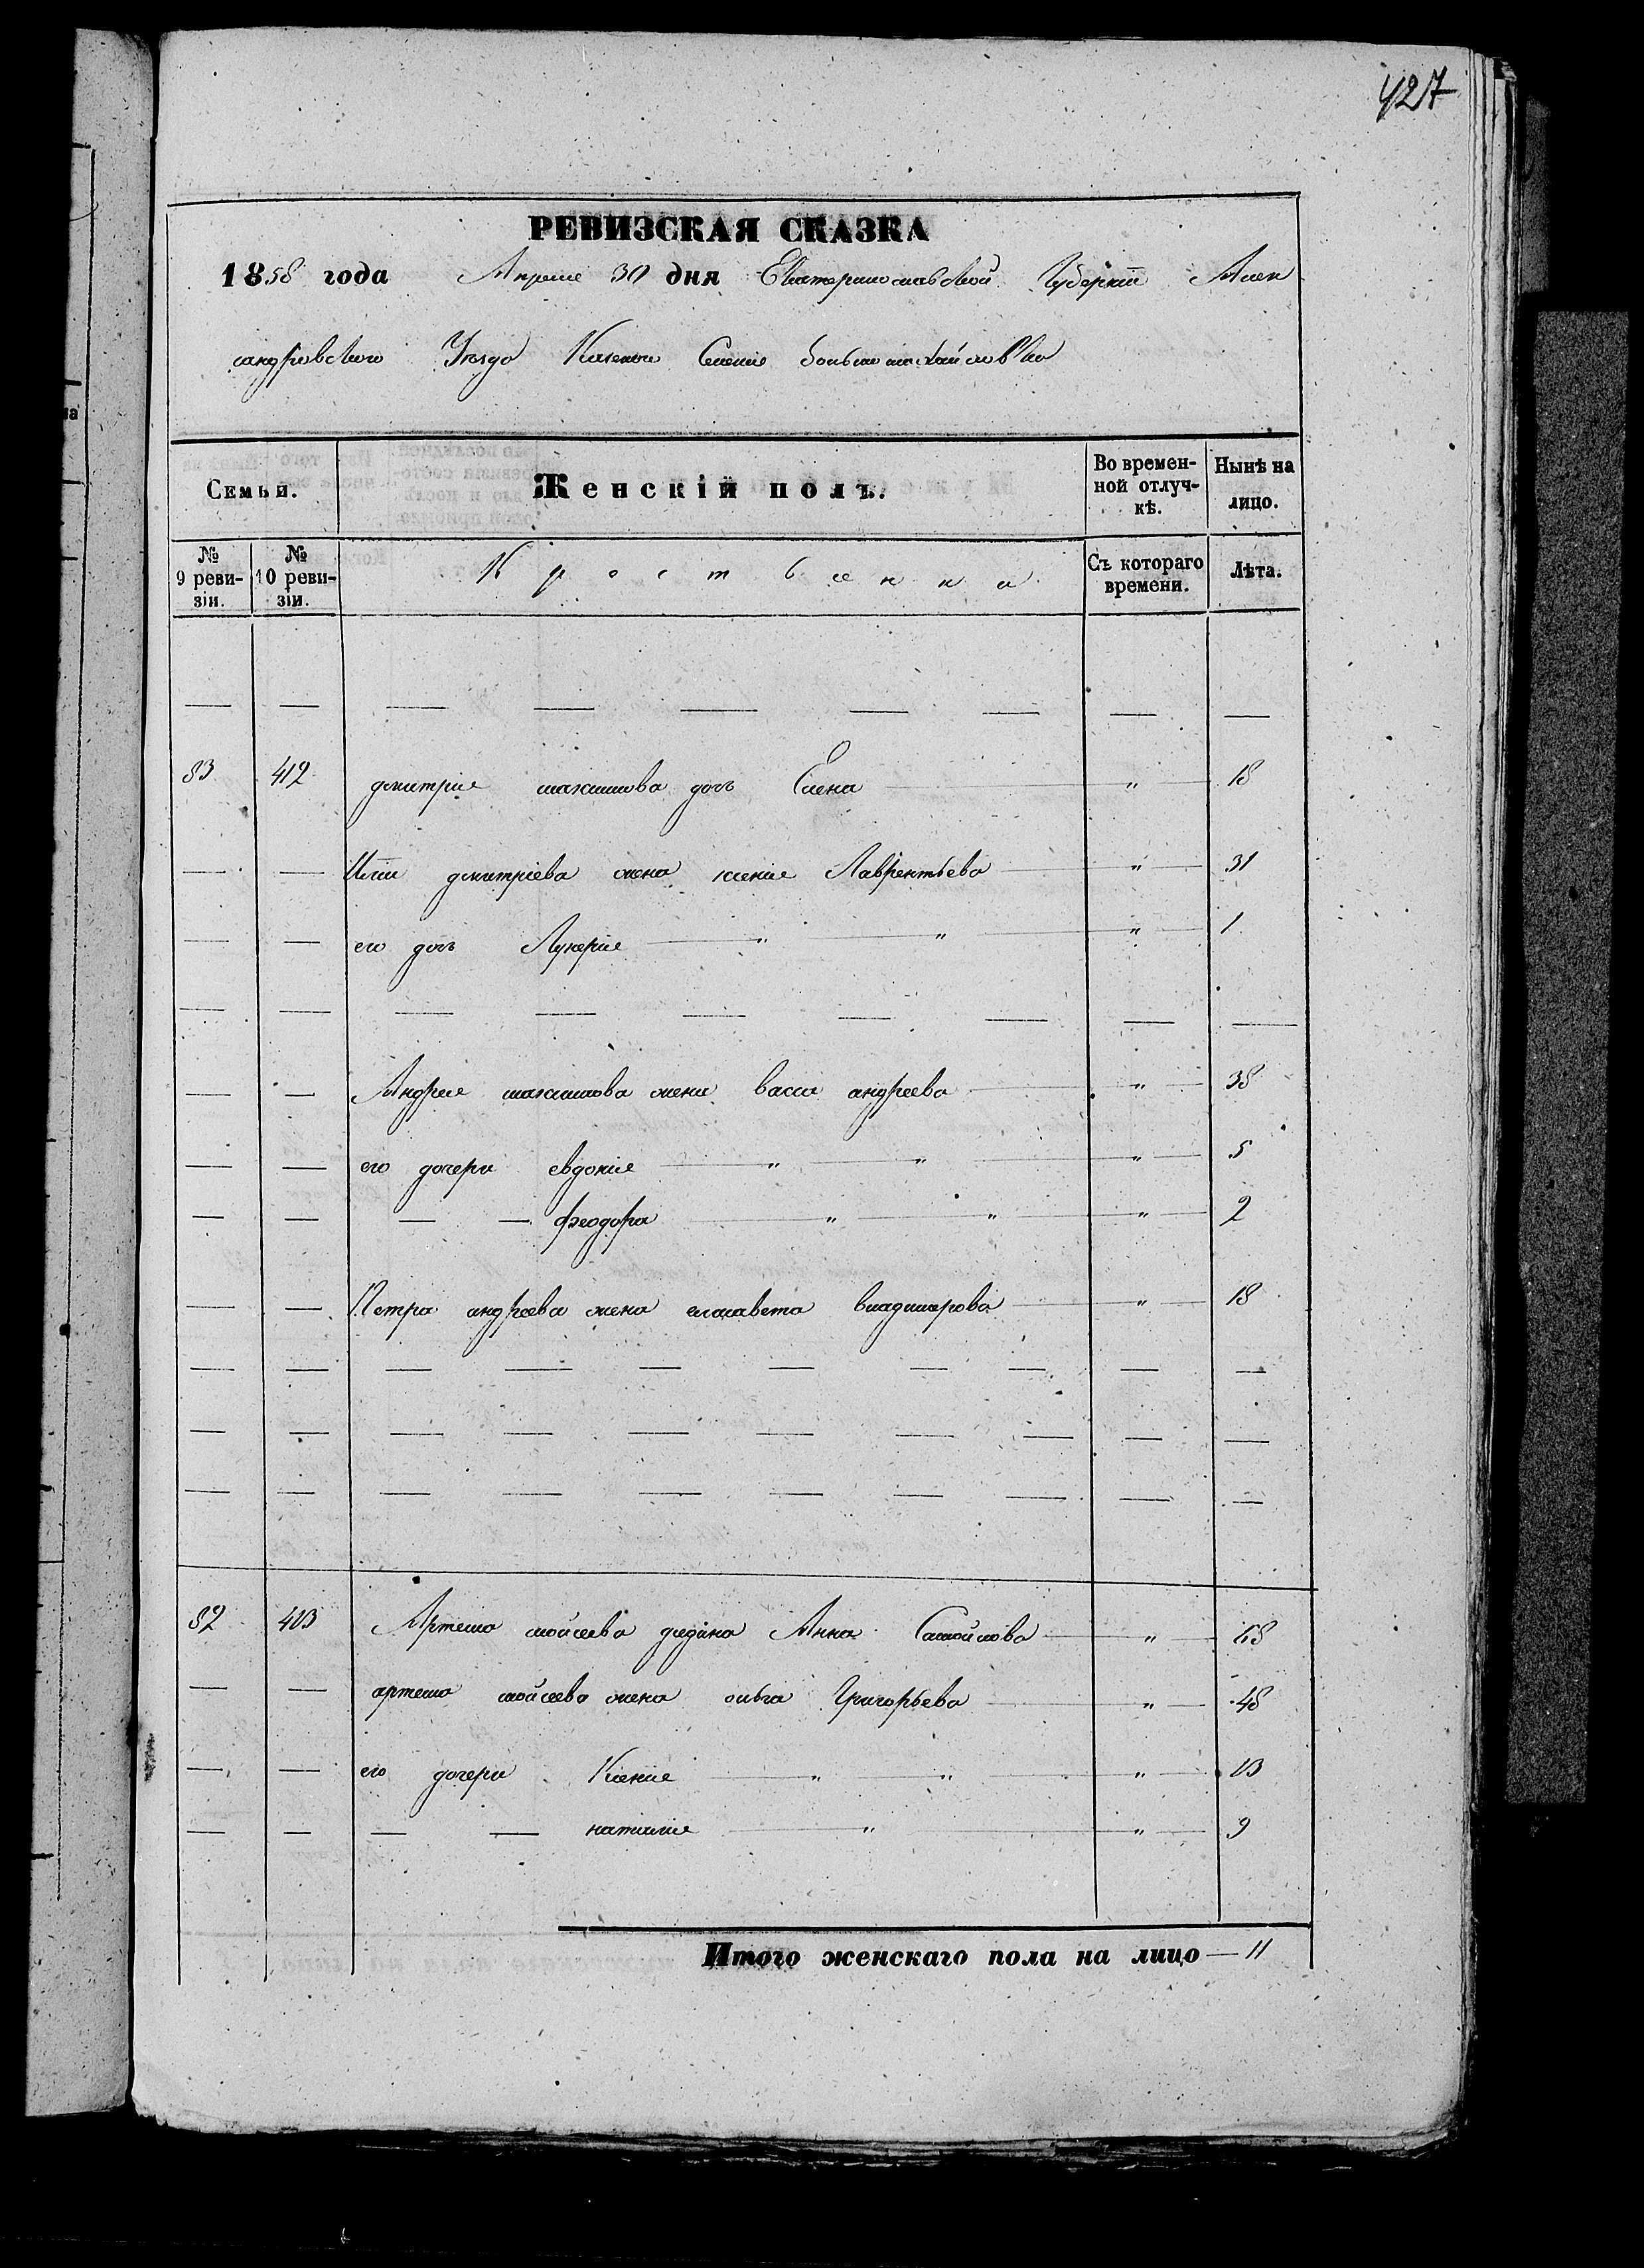 427
РЕВИЗСКАЯ СКАЗКА
1858 года Апреля 30 дня Екатеринославской Губернии Алек
сандровского Уезда Казенного Селения большемихайловки
Семьи. Женскій полъ. Во времен-ной отлуч-кѣ. Нынѣ на лицо.
№ 9 реви-зіи. № 10 реви-зіи. Крестьянки Съ котораго времени. Лѣта.
83 412 дмитрия максимова дочь Елена " 18
Илии дмитріева жена ксения Лаврентьева " 31
его дочь Лукерия " " " 1
Андрея максимова жена васса андреева " 38
его дочери евдокия " " " 5
феодора " " " 2
Петра андреева жена елисавета владимирова " 18
82 413 Артема мойсеева Анна Самойлова " 68
артема мойсеева жена ольга Григорьева " 48
его дочери Ксения " " " 13
наталия " " 9
Итого женскаго пола на лицо — 11